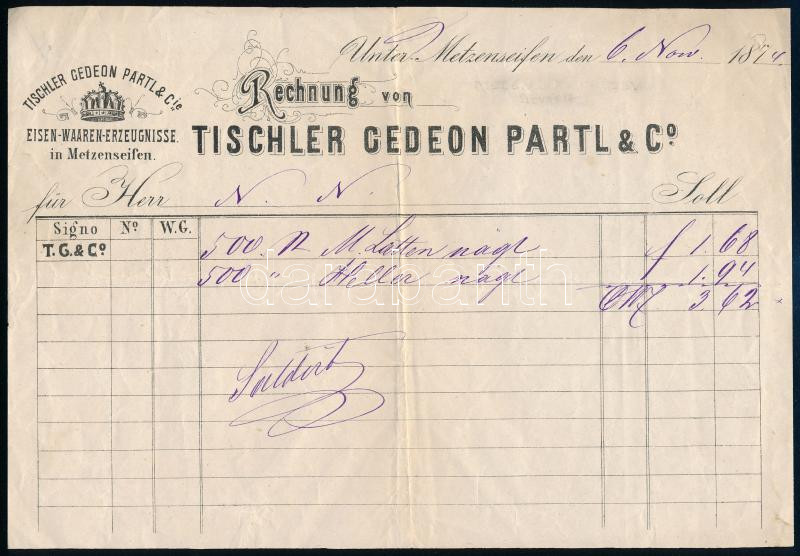 Unter-Metzenseifen den 6. Nov. 1874.
TISCHLER GEDEON PARTL & Cie
EISEN-WAAREN-ERZEUGNISSE.
in Metzenseifen.
Rechnung von
TISCHLER GEDEON PARTL & Co
für Herr N. N. Soll
Signo No W.G.
T.G.&Co
500. M. Latten nägl f 1.68
500 " Heller nägl 1.94
ÖW f 3.62
Saldirt
darabanth